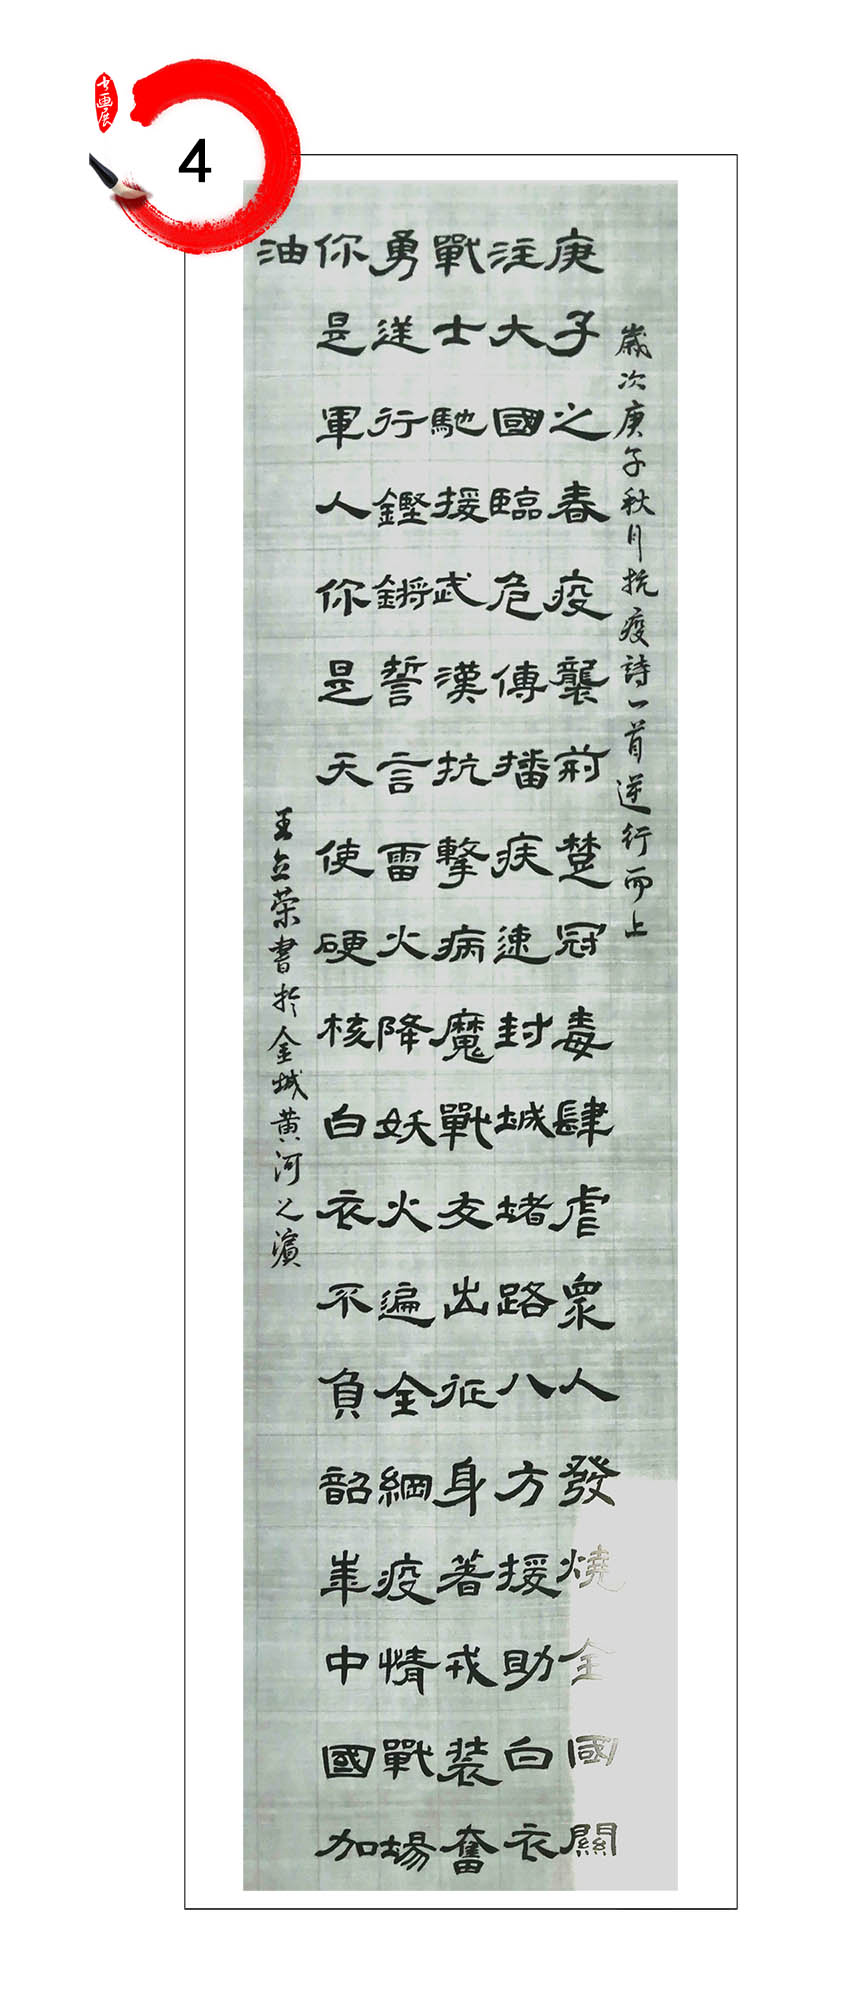 书画展
4
歲次庚子秋月抗疫詩一首逆行而上
庚子之春疫襲荊楚冠毒肆虐衆人發燒全國關
注大國臨危傳播疾速封城堵路八方援助白衣
戰士馳援武漢抗擊病魔戰友出征身著戎裝奮
勇送行鏗鏘誓言雷火降妖火遍全網疫情戰場
你是軍人你是天使硬核白衣不負韶華中國加
油
王立荣書於金城黄河之濱